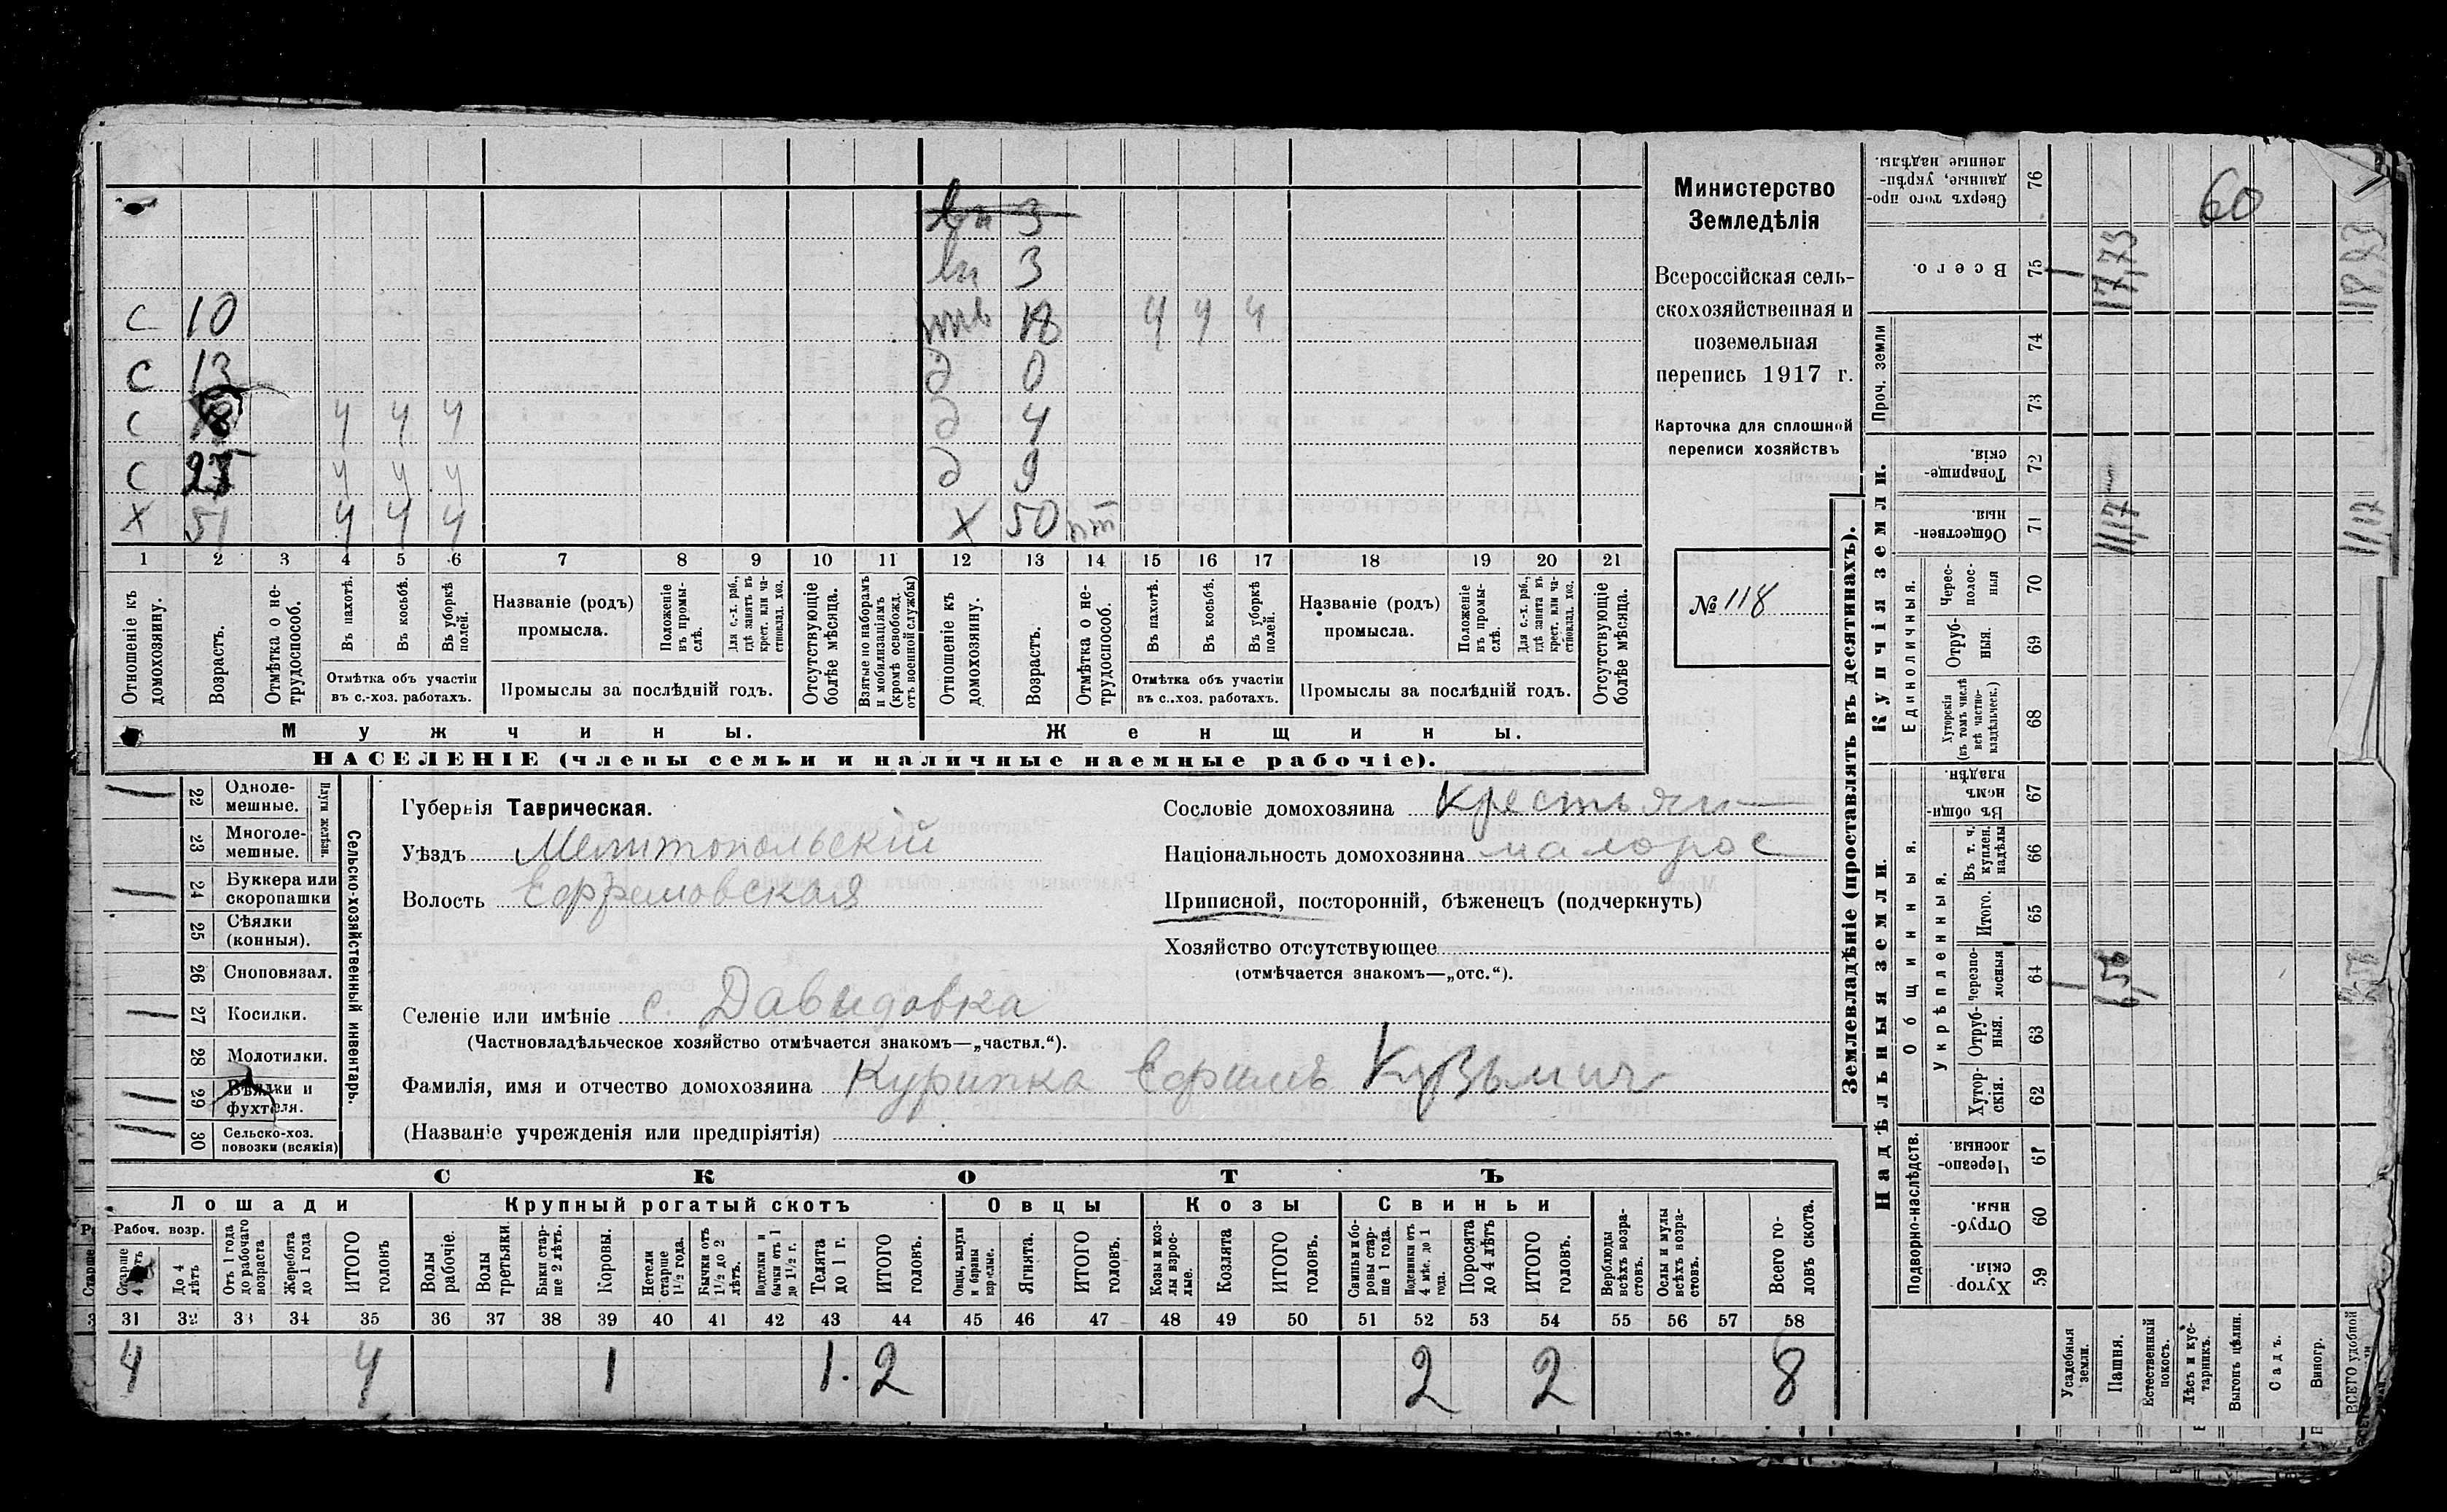 Министерство
Земледѣлія
Всероссійская сель-
скохозяйственная и
поземельная
перепись 1917 г.
Карточка для сплошной
переписи хозяйствъ
№ 118
С 10
С 13
С 18 ч ч ч
С ч ч ч
Х 51 ч ч ч
3
3
18 ч ч ч
д 0
д 4
д 9
Х 50
1 2 3 4 5 6 7 8 9 10 11 12 13 14 15 16 17 18 19 20 21
Отношеніе къ домохозяину.
Возрастъ.
Отмѣтка о не-трудоспособ.
Въ пахотѣ.
Въ косьбѣ.
Въ уборкѣ полей.
Отмѣтка объ участіи
въ с.-хоз. работахъ.
Названіе (родъ)
промысла.
Положеніе въ промы-слѣ.
Для с.-х. раб., гдѣ занятъ въ крест. или ча-стновлад. хоз.
Промыслы за послѣдній годъ.
Отсутствующіе болѣе мѣсяца.
Взятые по наборамъ и мобилизаціямъ (кромѣ освобожд. отъ военной службы)
Отношеніе къ домохозяину.
Возрастъ.
Отмѣтка о не-трудоспособ.
Въ пахотѣ.
Въ косьбѣ.
Въ уборкѣ полей.
Отмѣтка объ участіи
въ с.-хоз. работахъ.
Названіе (родъ)
промысла.
Положеніе въ промы-слѣ.
Для с.-х. раб., гдѣ занята въ крест. или ча-стновлад. хоз.
Промыслы за послѣдній годъ.
Отсутствующіе болѣе мѣсяца.
Мужчины. Женщины.
НАСЕЛЕНІЕ (члены семьи и наличные наемные рабочіе).
Сельско-хозяйственный инвентарь.
Плуги желѣзн.
22 Одноле-мешные.
23 Многоле-мешные.
24 Буккера или скоропашки
25 Сѣялки (конныя).
26 Сноповязал.
27 Косилки.
28 Молотилки.
29 Вѣялки и фухтеля.
30 Сельско-хоз. повозки (всякія)
Губернія Таврическая.
Уѣздъ Мелитопольскій
Волость Ефремовская
Селеніе или имѣніе с. Давыдовка
(Частновладѣльческое хозяйство отмѣчается знакомъ—„частвл.“).
Фамилія, имя и отчество домохозяина Курипка Ефимъ Кузьмич
(Названіе учрежденія или предпріятія)
Сословіе домохозяина крестьян
Національность домохозяина малорос
Приписной, посторонній, бѣженецъ (подчеркнуть)
Хозяйство отсутствующее
(отмѣчается знакомъ—„отс.“).
СКОТЪ
Лошади Крупный рогатый скотъ Овцы Козы Свиньи
Рабоч. возр.
Старше 4 лѣтъ
До 4 лѣтъ
Отъ 1 года до рабочаго возраста
Жеребята до 1 года
ИТОГО головъ
Волы рабочіе.
Волы третьяки
Быки стар-ше 2 лѣтъ.
Коровы.
Нетели старше 1½ года.
Бычки отъ 1½ до 2 лѣтъ.
Подтелки и бычки отъ 1 до 1½ г.
Телята до 1 г.
ИТОГО головъ.
Овцы, валухи и бараны взрослые.
Ягнята.
ИТОГО головъ.
Козы и коз-лы взрос-лые.
Козлята
ИТОГО головъ.
Свиньи и бо-ровы стар-ше 1 года.
Подсвинки отъ 4 мѣс. до 1 года.
Поросята до 4 лѣтъ
ИТОГО головъ.
Верблюды всѣхъ возра-стовъ.
Ослы и мулы всѣхъ возра-стовъ.
Всего го-ловъ скота.
31 32 33 34 35 36 37 38 39 40 41 42 43 44 45 46 47 48 49 50 51 52 53 54 55 56 57 58
4 4 1 1. 2 2 2 8
Землевладѣніе (проставлять въ десятинахъ).
Надѣльныя земли.
Купчія земли.
Проч. земли
Подворно-наслѣдств.
Общинныя.
Укрѣпленныя.
Единоличныя.
59 Хутор-скія.
60 Отруб-ныя.
61 Черезпо-лосныя
62 Хутор-скія.
63 Отруб-ныя.
64 Черезпо-лосныя
65 Итого.
66 Въ т. ч. куплен. надѣлы
67 Въ общи-номъ владѣн.
68 Хуторскія (въ томъ числѣ всѣ частно-владѣльческ.)
69 Отруб-ныя.
70 Черес-полос-ныя
71 Обществен-ныя.
72 Товарище-скія.
73
74
75 Всего.
76 Сверхъ того про-данные, укрѣп-ленные надѣлы.
Усадебныя земли.
Пашня.
Естественный покосъ.
Лѣсъ и кус-тарникъ.
Выгонъ цѣлин.
Садъ.
Виногр.
ВСЕГО удобной
6,56
11,17
17,73
60
11,17